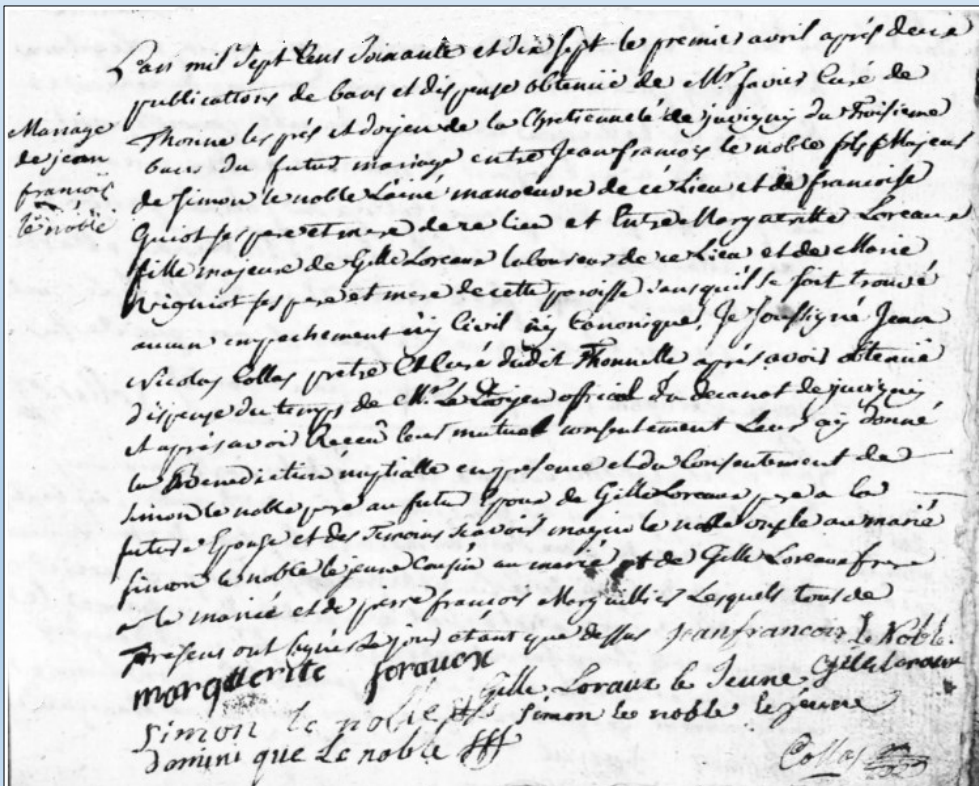 Lan mil sept Cens soixante et dix sept le premier avril après deux
publications de bans et dispense obtenüe de Mr favier Curé de
Mariage
de jean
françois
le noble
Thonne les prés et doyen de la Chretienneté de juvigny du Troisieme
bans du futur mariage entre Jean françois le noble fils Majeur
de Simon le noble Lainé manoeuvre de ce Lieu et de francoise
Guiot ses pere et mere de ce lieu et Entre Margueritte Loreaux
fille majeure de Gille Loreaux laboureur de ce Lieu et de Marie
Vigniot ses pere et mere de cette paroisse sans quil se soit trouvé
aucun empechement ny Civil ny Canonique, Je soussigné Jean
Nicolas Collas pretre Et Curé dudit Thonnelle après avoir obtenüe
dispense du temps de Mr Le Doyen official du decanat de juvigny
et après avoir Reçeu leur mutuel consentement Leur ay donné
la Benediction nuptialle en presence et du Consentement de
simon le noble pere au futur Epoux de Gille Loreaux pere a la
future Epouse et des Temoins scavoir le noble oncle au marié
simon le noble le jeune Cousin au marié et de Gille Loreaux frere
a la mariée et de pierre francois Marguillier Lesquels tous de
Presens ont signés Le jour et an que dessus jeanfrancois Le Noble
marguerite foraux Gille Loraux le Jeune Gille loraux
Simon le noble simon le noble le jeune
Dominique Le noble Collas